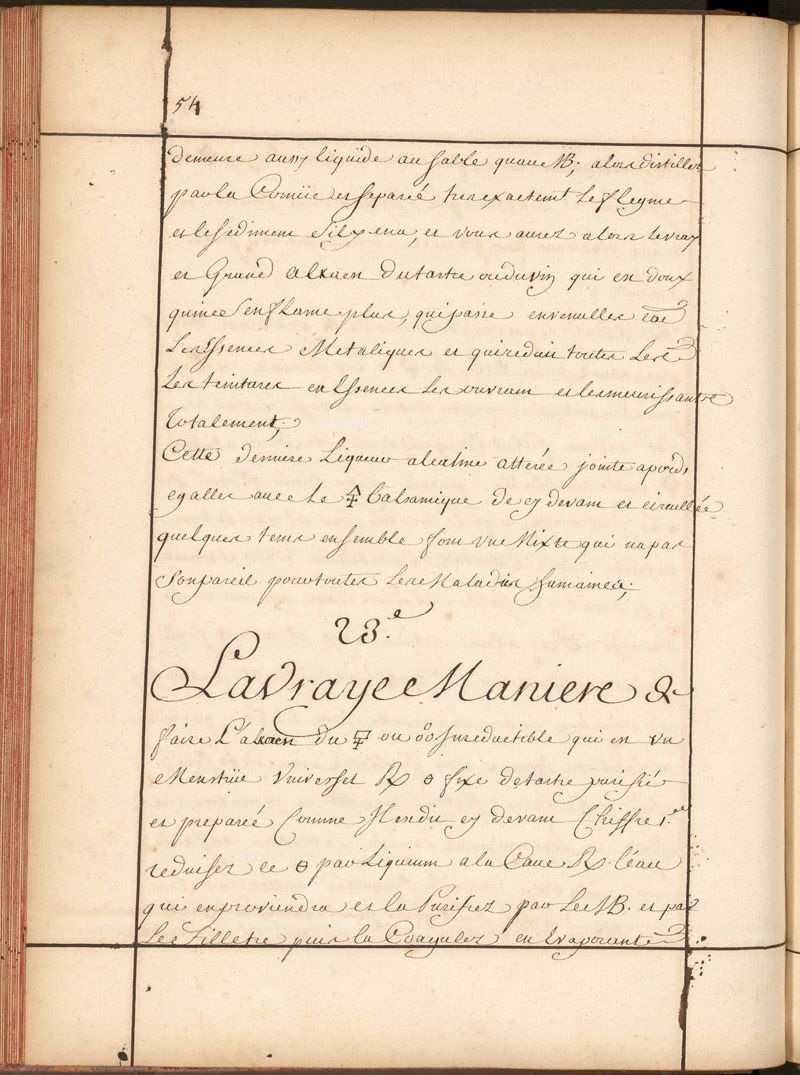 54
demeure aussy liquide au sable quau MB; alors distillez
par la Cornüe et separé tres exactemt le flegme
et le sediment s'il y en a, et vous aurez alors le vray
et Grand alxaen du tartre ou du vin qui est doux
qui ne s'enflame plus, qui passe en
Les Essences Metaliques et qui reduit toutes Les
Les teintures en Essences Les ouvrant et les meurissant
Totalement;
Cette derniere Liqueur alcaline atterée jointe a poids
egalles avec Le 🜍 balsamique de cy devant et circullée
quelques tems ensemble font une Mixte qui n'a pas
son pareil pour toutes Les Maladies humaines;
23.e
La Vraye Maniere de
faire L'alxaen du ou Irreductible qui est un
Menstrüe Vniversel Rx 🜔 fixe de tartre purifié
et preparé Comme Il est dit cy devant Chiffre 1.er
reduisez ce 🜔 par Liquium a la Cave Rx. l'eau
qui en proviendra et la Purifiez par Le MB. et par
Le filtre puis la Coagulez en Evaporant